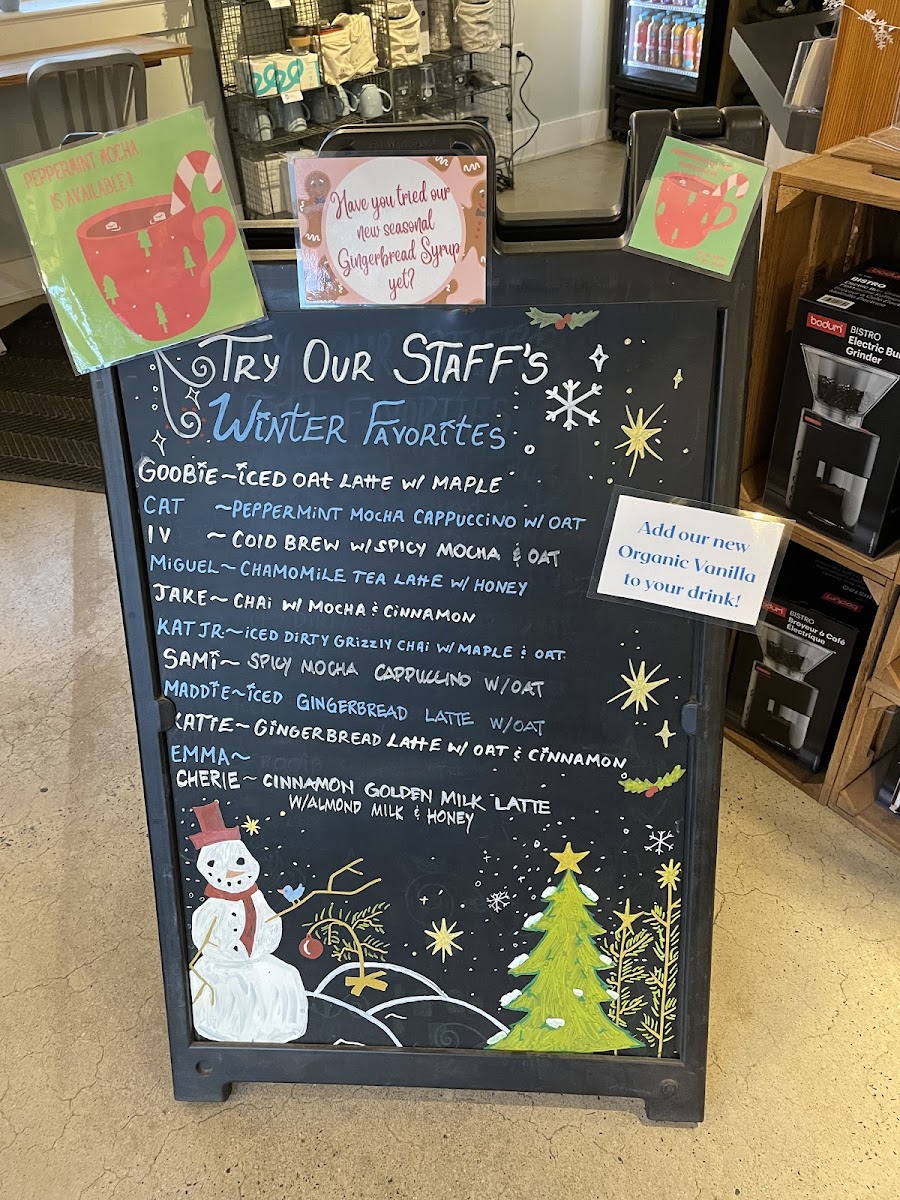 PEPPERMINT MOCHA
IS AVAILABLE!
Have you tried our
new seasonal
Gingerbread Syrup
yet?
TRY OUR STAFF'S
WINTER FAVORITES
GOOBIE~ICED OAT LATTE W/ MAPLE
CAT ~PEPPERMINT MOCHA CAPPUCCINO W/ OAT
IV ~ COLD BREW W/SPICY MOCHA & OAT
MIGUEL~CHAMOMILE TEA LATTE W/ HONEY
JAKE~ CHAI W/ MOCHA & CINNAMON
KAT JR.~ICED DIRTY GRIZZLY CHAI W/ MAPLE & OAT
SAMI~ SPICY MOCHA CAPPUCCINO W/OAT
MADDIE~ICED GINGERBREAD LATTE W/OAT
KATIE~GINGERBREAD LATTE W/ OAT & CINNAMON
EMMA~
CHERIE~ CINNAMON GOLDEN MILK LATTE
W/ALMOND MILK & HONEY
Add our new
Organic Vanilla
to your drink!
bodum
BISTRO
Electric
Grinder
bodum
BISTRO
Broyeur à Café
Électrique